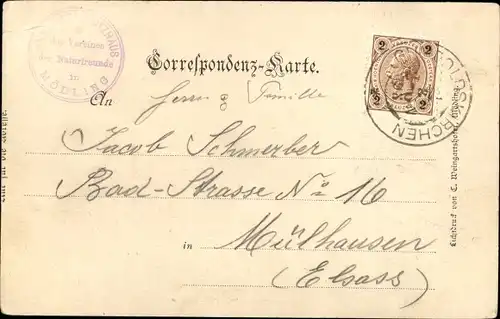 des Vereines
der Naturfreunde
in
MÖDLING
Correspondenz-Karte.
An Herrn & Familie
Jacob Schmerber
Bad-Strasse No 16
in Mülhausen
(Elsass)
2 2
2 2
KIRCHEN
Lichtdruck von C. Weingartshofer, Mödling.
Nur für die Adresse.